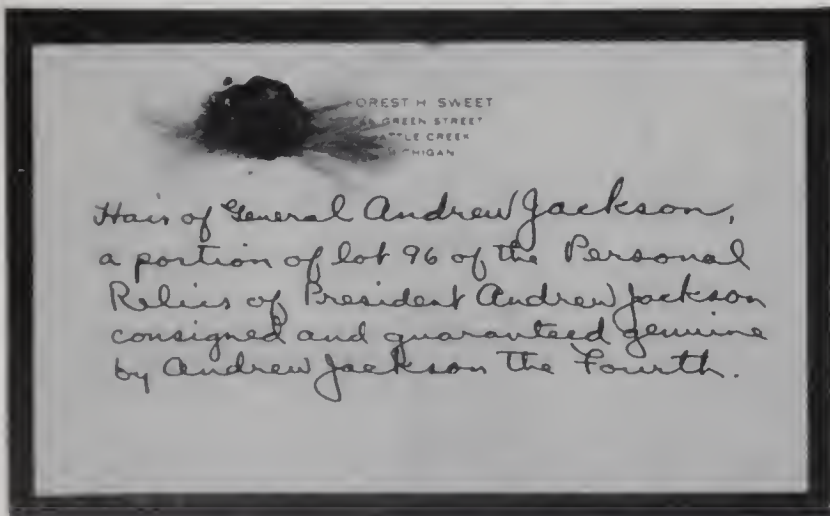 OREST H. SWEET
GREEN STREET
ATTLE CREEK
HIGAN
Hair of General Andrew Jackson,
a portion of lot 96 of the Personal
Relics of President Andrew Jackson
consigned and guaranteed genuine
by Andrew Jackson The Fourth.